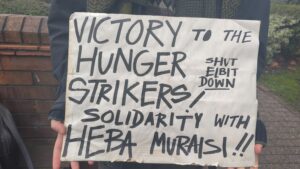 VICTORY TO THE
HUNGER
STRIKERS!
SHUT
ELBIT
DOWN
SOLIDARITY WITH
HEBA MURAISI!!